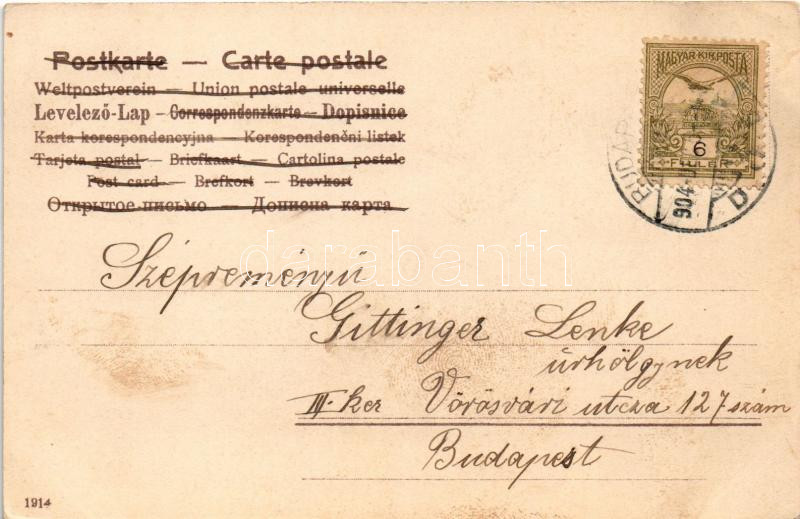 Postkarte — Carte postale
Weltpostverein — Union postale universelle
Levelező-Lap - Correspondenzkarte — Dopisnice
Karta korespondencyjna — Korespondenčni listek
Tarjeta postal — Briefkaart — Cartolina postale
Post card — Brefkort — Brevkort
Открытое письмо — Дописна карта
MAGYAR KIR. POSTA
6
FILLÉR
BUDAP
904
D
darabanth
Szépreményű
Gittinger Lenke
úrhölgynek
III. ker Vörösvári utcza 127 szám
Budapest
1914